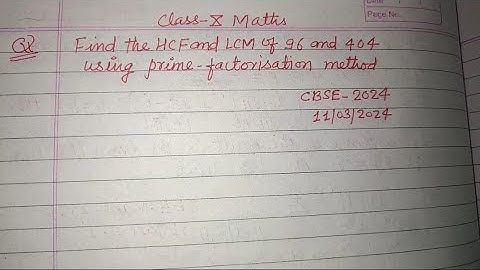 Class-X Maths
Page No.
Q Find the HCF and LCM of 96 and 404
using prime-factorisation method
CBSE-2024
11/03/2024